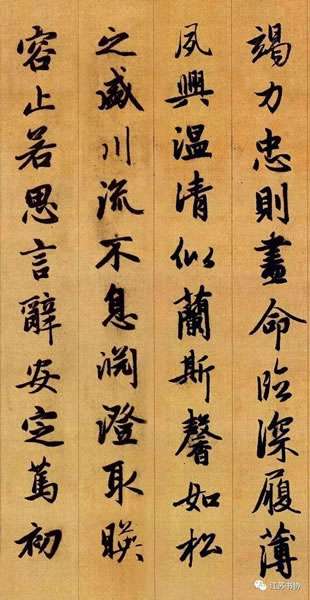 竭力忠則盡命臨深履薄
夙興温清似蘭斯馨如松
之盛川流不息淵澄取暎
容止若思言辭安定篤初
江苏书协